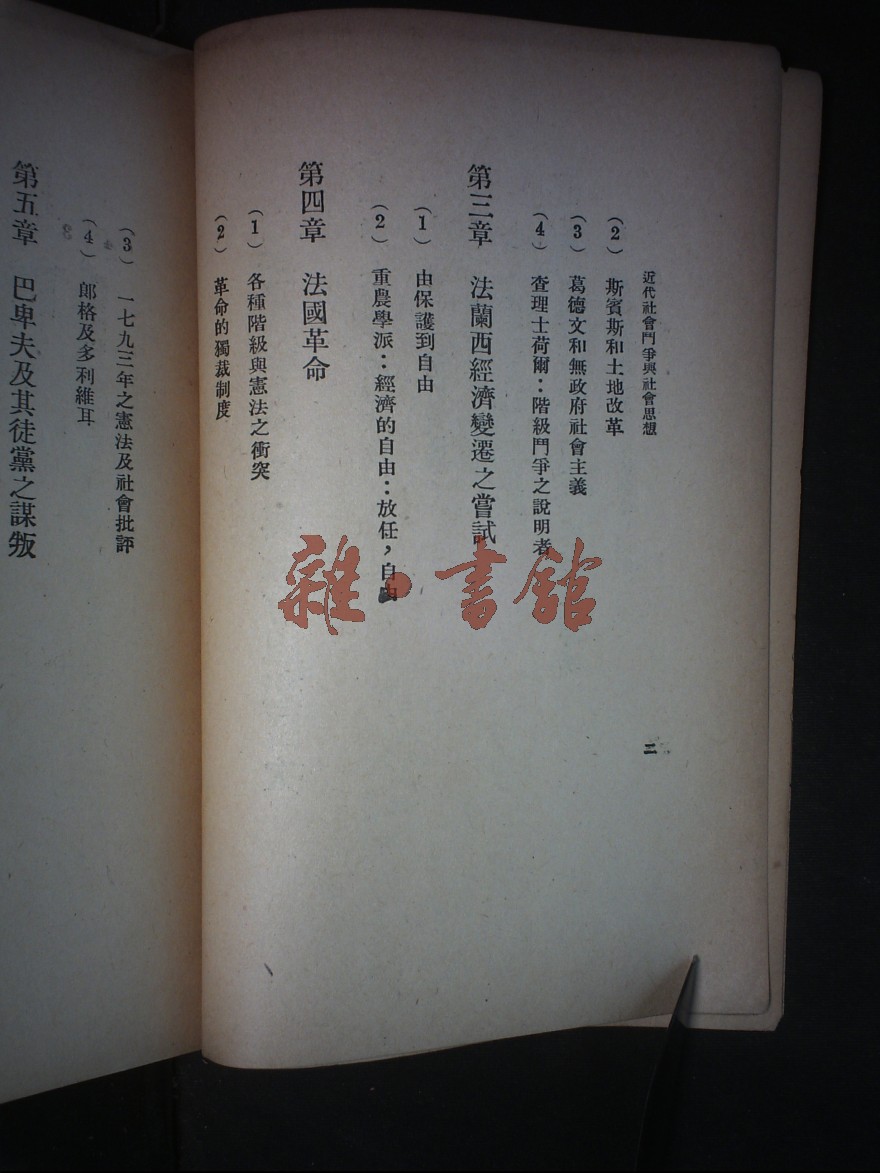 近代社會鬥爭與社會思想
二
(2) 斯賓斯和土地改革
(3) 葛德文和無政府社會主義
(4) 查理士荷爾：階級鬥爭之說明者
第三章 法蘭西經濟變遷之嘗試
(1) 由保護到自由
(2) 重農學派：經濟的自由：放任，自由
第四章 法國革命
(1) 各種階級與憲法之衝突
(2) 革命的獨裁制度
(3) 一七九三年之憲法及社會批評
(4) 郎格及多利維耳
第五章 巴卑夫及其徒黨之謀叛
雜·書館